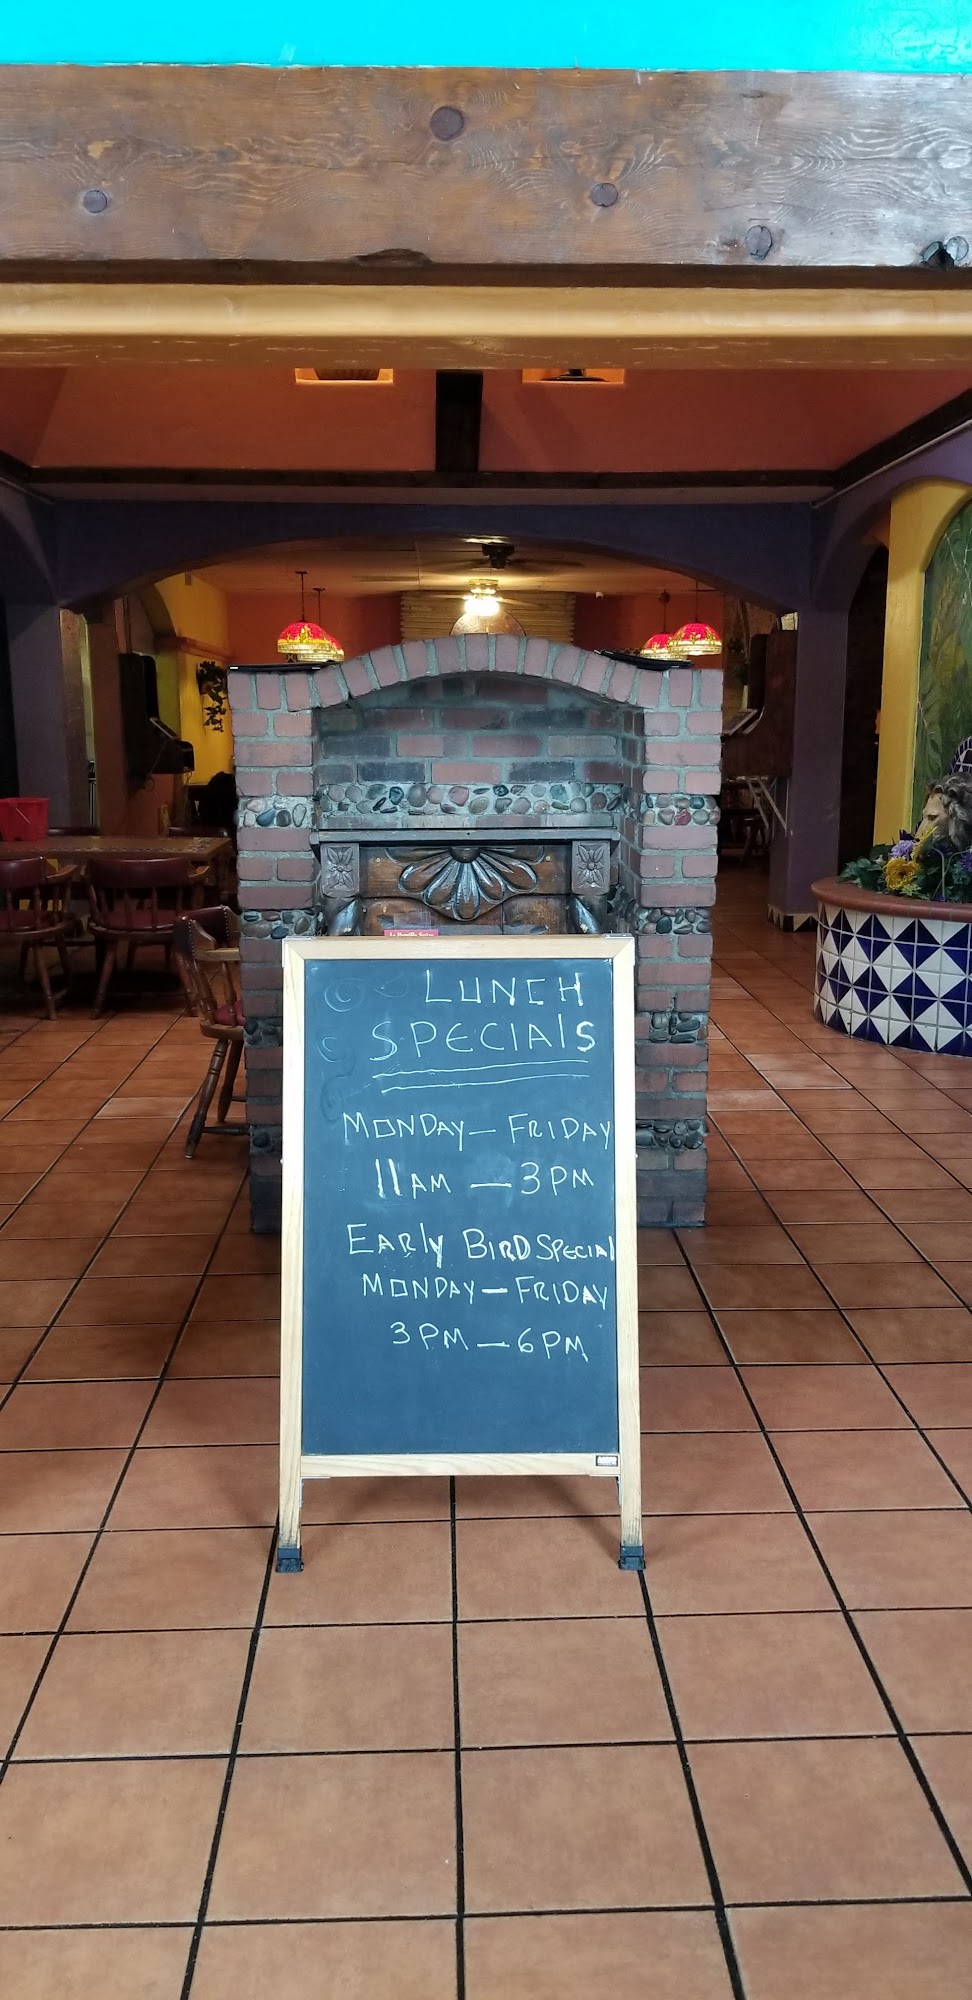 LUNCH
SPECIAlS
MONDAY — FRIDAY
11AM — 3PM
EARly BIRD SPECIAl
MONDAY — FRIDAY
3PM — 6PM